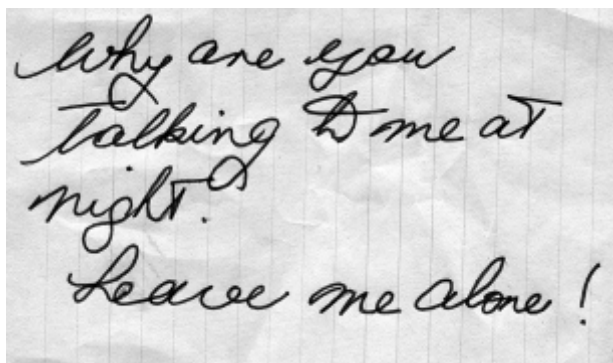 Why are you
talking to me at
night.
Leave me alone!